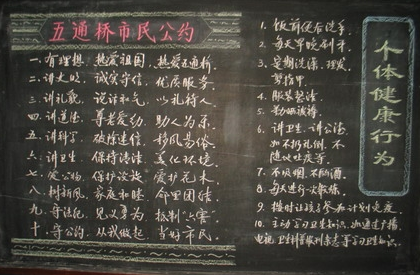 五通桥市民公约
一、有理想 热爱祖国 热爱五通桥
二、讲大政 诚实守信 优质服务
三、讲礼貌 说话和气 以礼待人
四、讲道德 尊老爱幼 助人为乐
五、讲科学 破除迷信 移风易俗
六、讲卫生 保持清洁 美化环境
七、爱公物 保护设施 爱护花木
八、树新风 家庭和睦 邻里团结
九、守法纪 见义勇为 抵制六害
十、守公约 从我做起 当好市民
个体健康行为
1、饭前便后洗手。
2、每天早晚刷牙。
3、定期洗澡、理发、
剪指甲。
4、服装整洁。
5、勤晒被褥。
6、讲卫生、讲公德,
如不扔礼倒、不
随地吐痰等。
7、不吸烟、不酗酒。
8、每天进行一次锻炼。
9、按时让孩子参加计划免疫。
10、主动学习卫生知识,如通过广播、
电视、卫生科普报刊杂志等学习卫生知识。